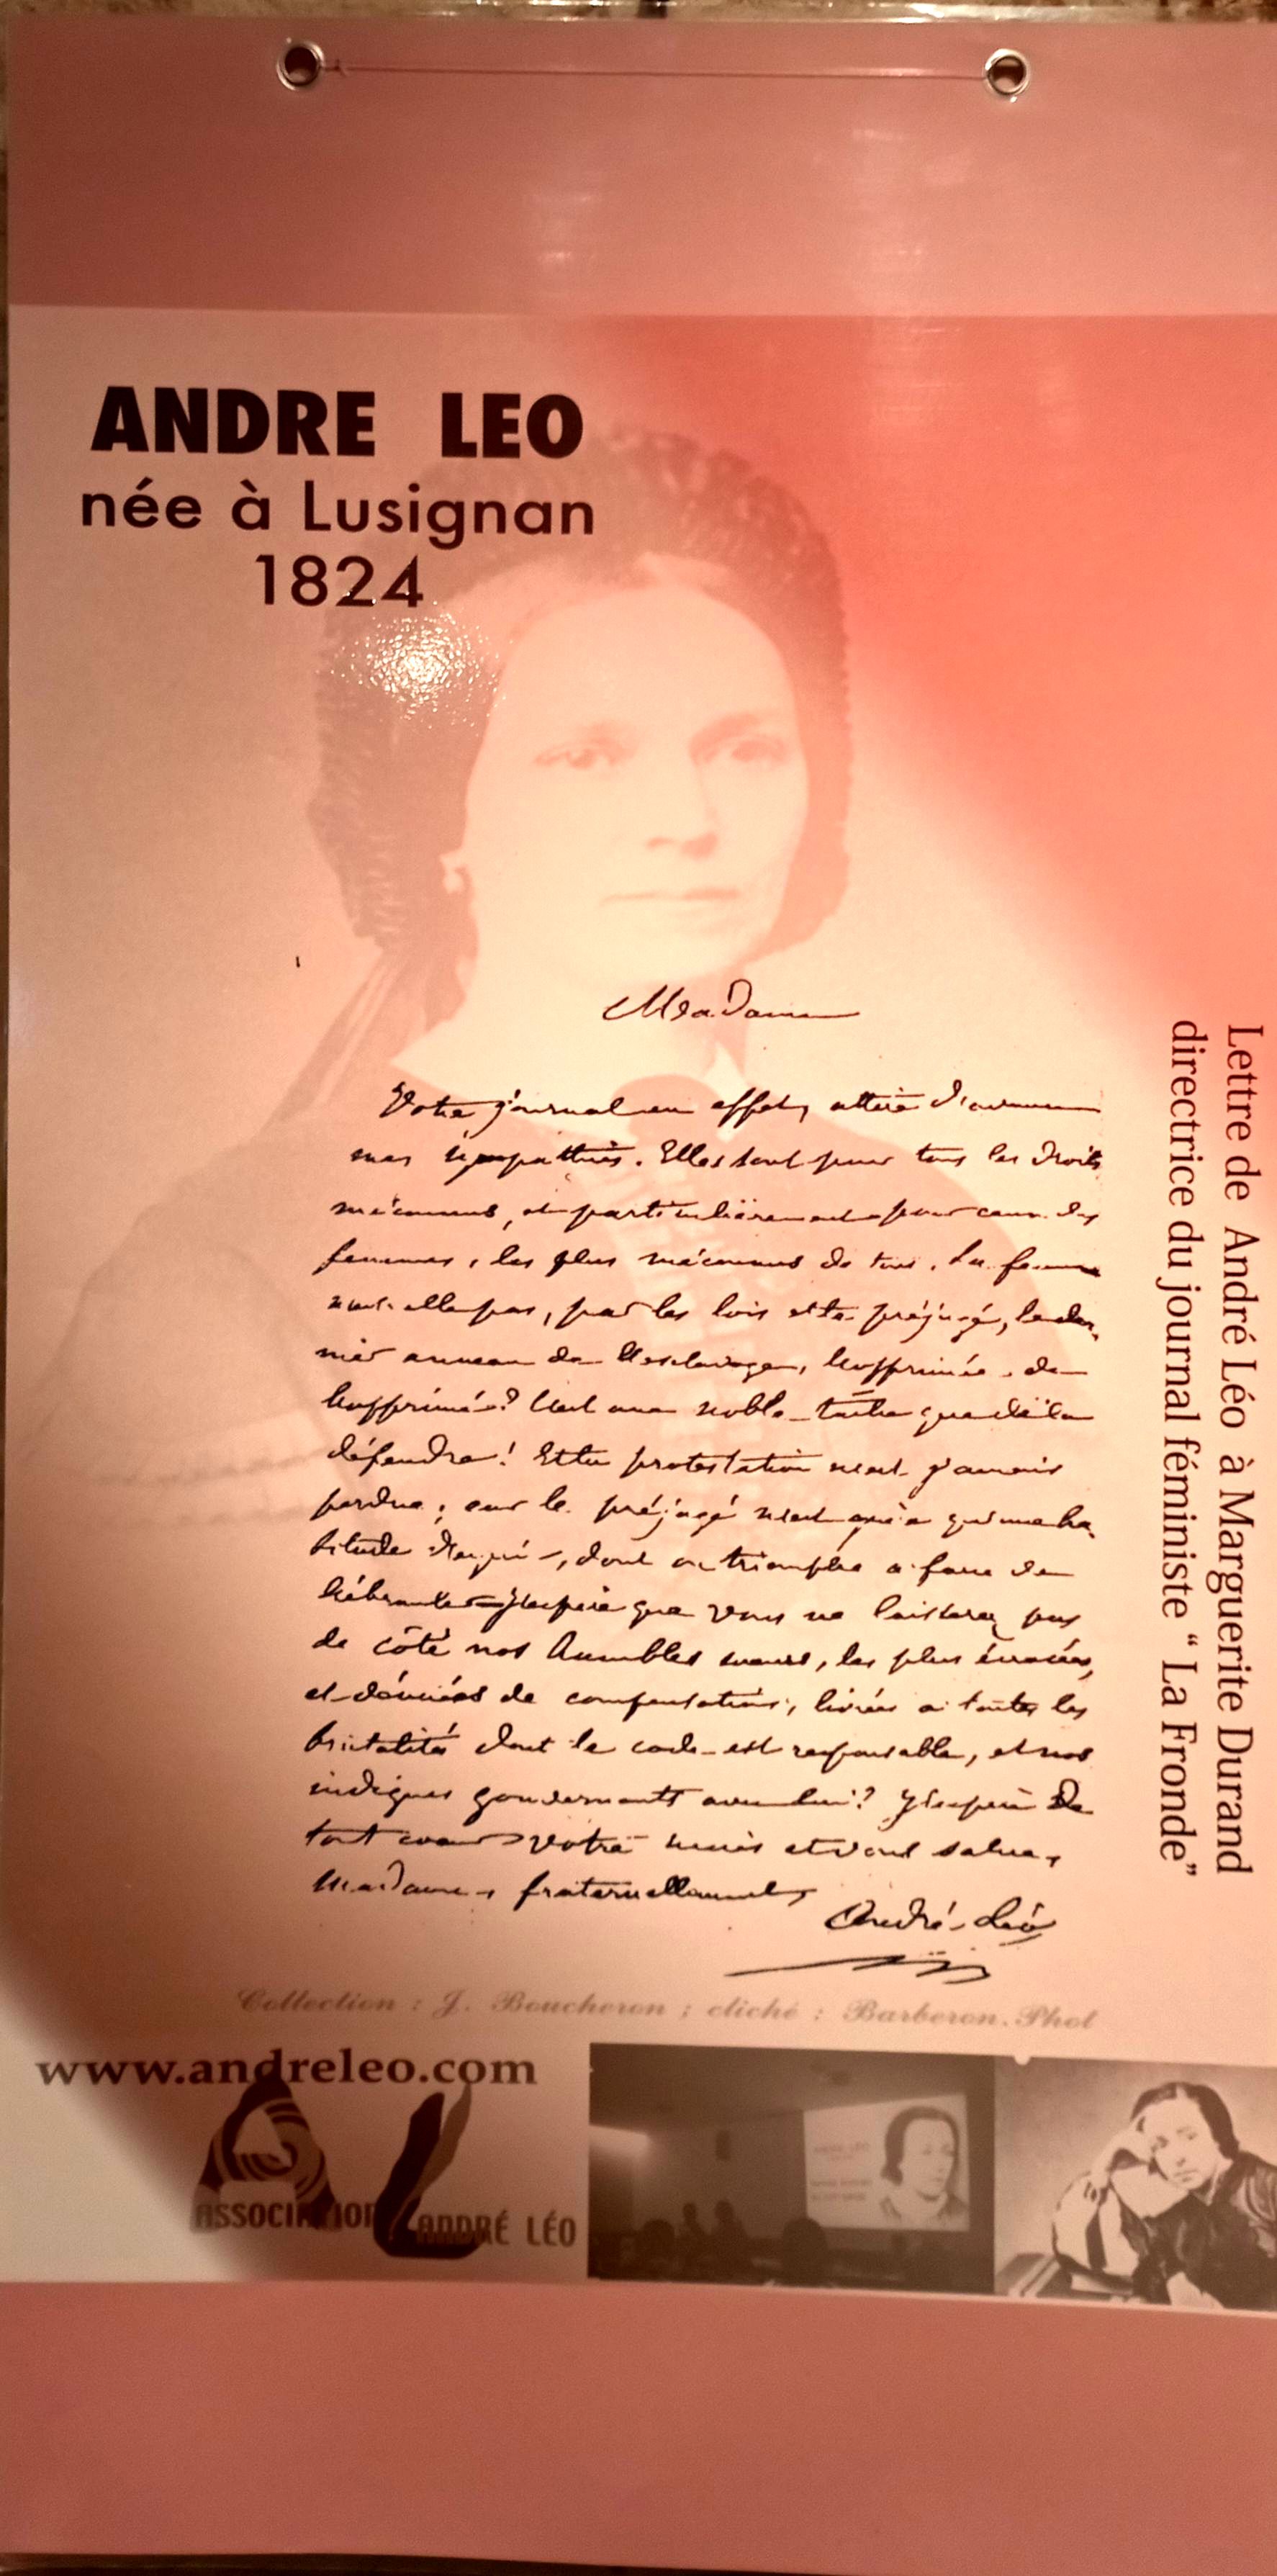 ANDRE LEO
née à Lusignan
1824
Madame
Votre journal en effet, attire d'avance
mes sympathies. Elles sont pour tous les droits
méconnus, et particulièrement pour ceux des
femmes, les plus méconnus de tous. La femme
n'est-elle pas, par les lois et le préjugé, le der-
nier anneau de l'esclavage, l'opprimée de
l'opprimé? C'est une noble tâche que de la
défendre! Et la protestation n'est jamais
perdue; car le préjugé n'est qu'une ha-
bitude d'esprit, dont on triomphe à force de
l'ébranler. J'espère que vous ne laisserez pas
de côté nos humbles sœurs, les plus écrasées,
et dénuées de compensations, livrées à toutes les
brutalités dont le code est responsable, et nos
indignes gouvernants avec lui? J'espère de
tout cœur votre succès et vous salue,
Madame, fraternellement,
André Léo
Lettre de André Léo à Marguerite Durand
directrice du journal féministe “ La Fronde”
Collection : J. Boucheron ; cliché : Barberon. Phot
www.andreleo.com
ASSOCIATION ANDRÉ LÉO